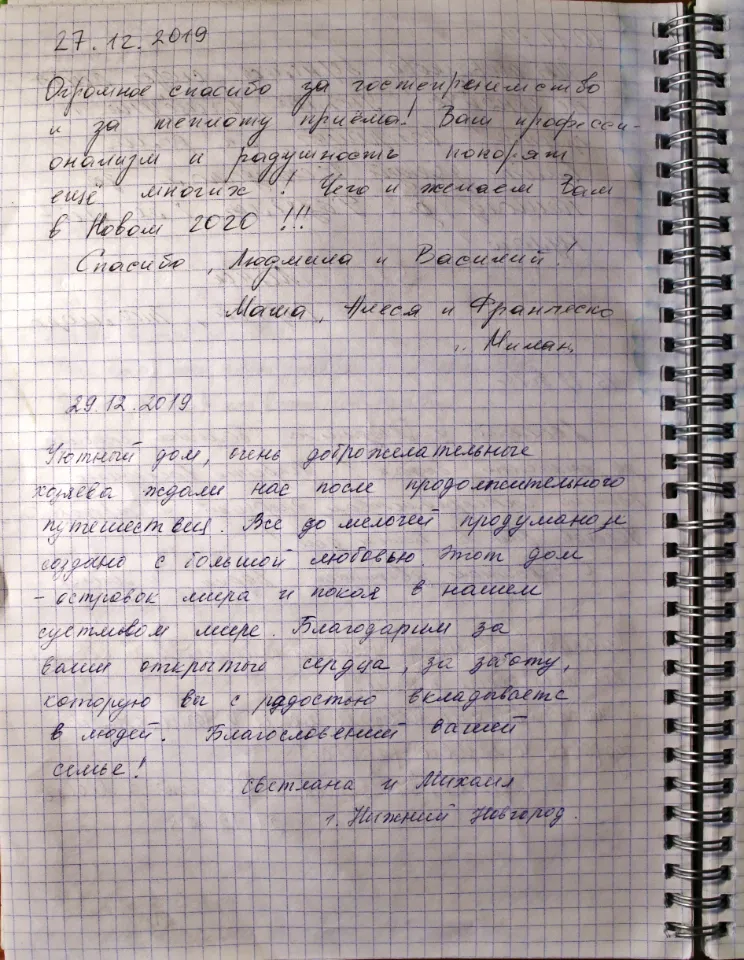 27.12.2019
Огромное спасибо за гостеприимство
и за теплоту приёма! Ваш професси-
онализм и радушность покорят
ещё многих! Чего и желаем Вам
в Новом 2020 !!!
Спасибо, Людмила и Василий!
Маша, Алеся и Франческо
г. Милан
29.12.2019
Уютный дом, очень доброжелательные
хозяева ждали нас после продолжительного
путешествия. Все до мелочей продумано и
создано с большой любовью. Этот дом
- островок мира и покоя в нашем
суетливом мире. Благодарим за
ваши открытые сердца, за заботу,
которую вы с радостью вкладываете
в людей. Благословений вашей
семье!
Светлана и Михаил
г. Нижний Новгород.